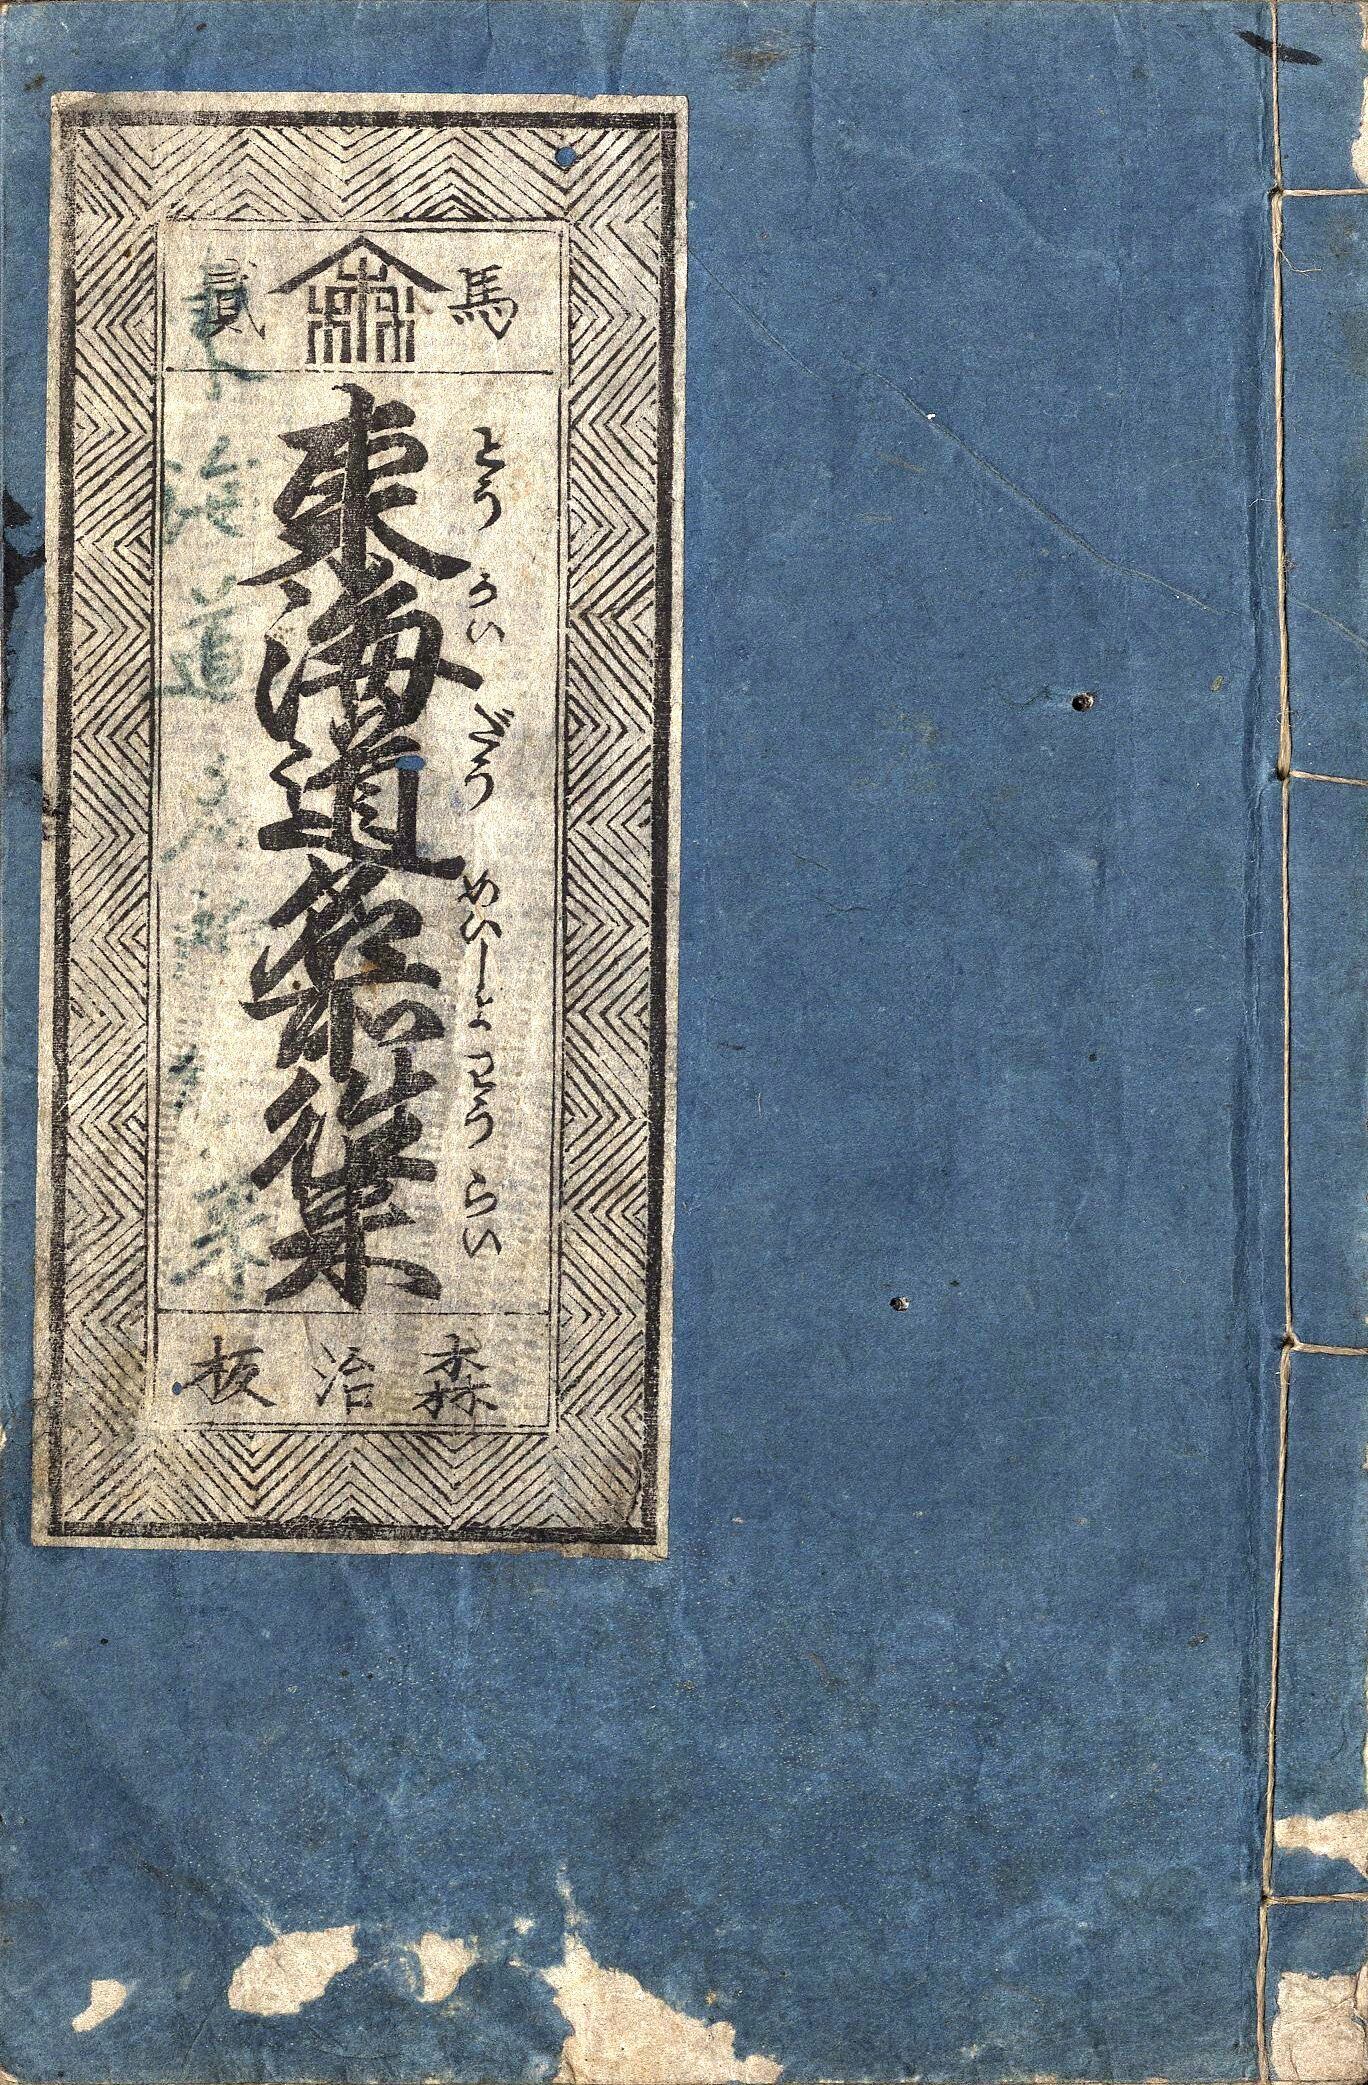 馬 貳
とうかいどうめいしよわうらい
東海道名所徃来
森治板